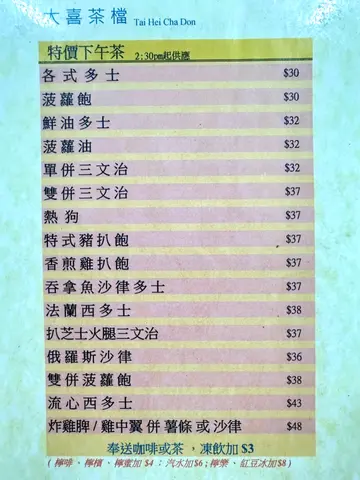 大喜茶檔 Tai Hei Cha Don
特價下午茶 2:30pm起供應
各式多士 $30
菠蘿飽 $30
鮮油多士 $32
菠蘿油 $32
單併三文治 $32
雙併三文治 $37
熱狗 $37
特式豬扒飽 $37
香煎雞扒飽 $37
吞拿魚沙律多士 $37
法蘭西多士 $38
扒芝士火腿三文治 $37
俄羅斯沙律 $36
雙併菠蘿飽 $38
流心西多士 $43
炸雞髀/雞中翼併薯條或沙律 $48
奉送咖啡或茶，凍飲加 $3
(檸啡、檸檬、檸蜜加 $4；汽水加$6;檸樂、紅豆冰加$8)